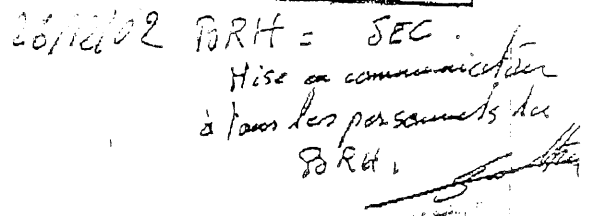 26/12/02 BRH = SEC.
Mise en communication
à tous les personnels du
BRH.